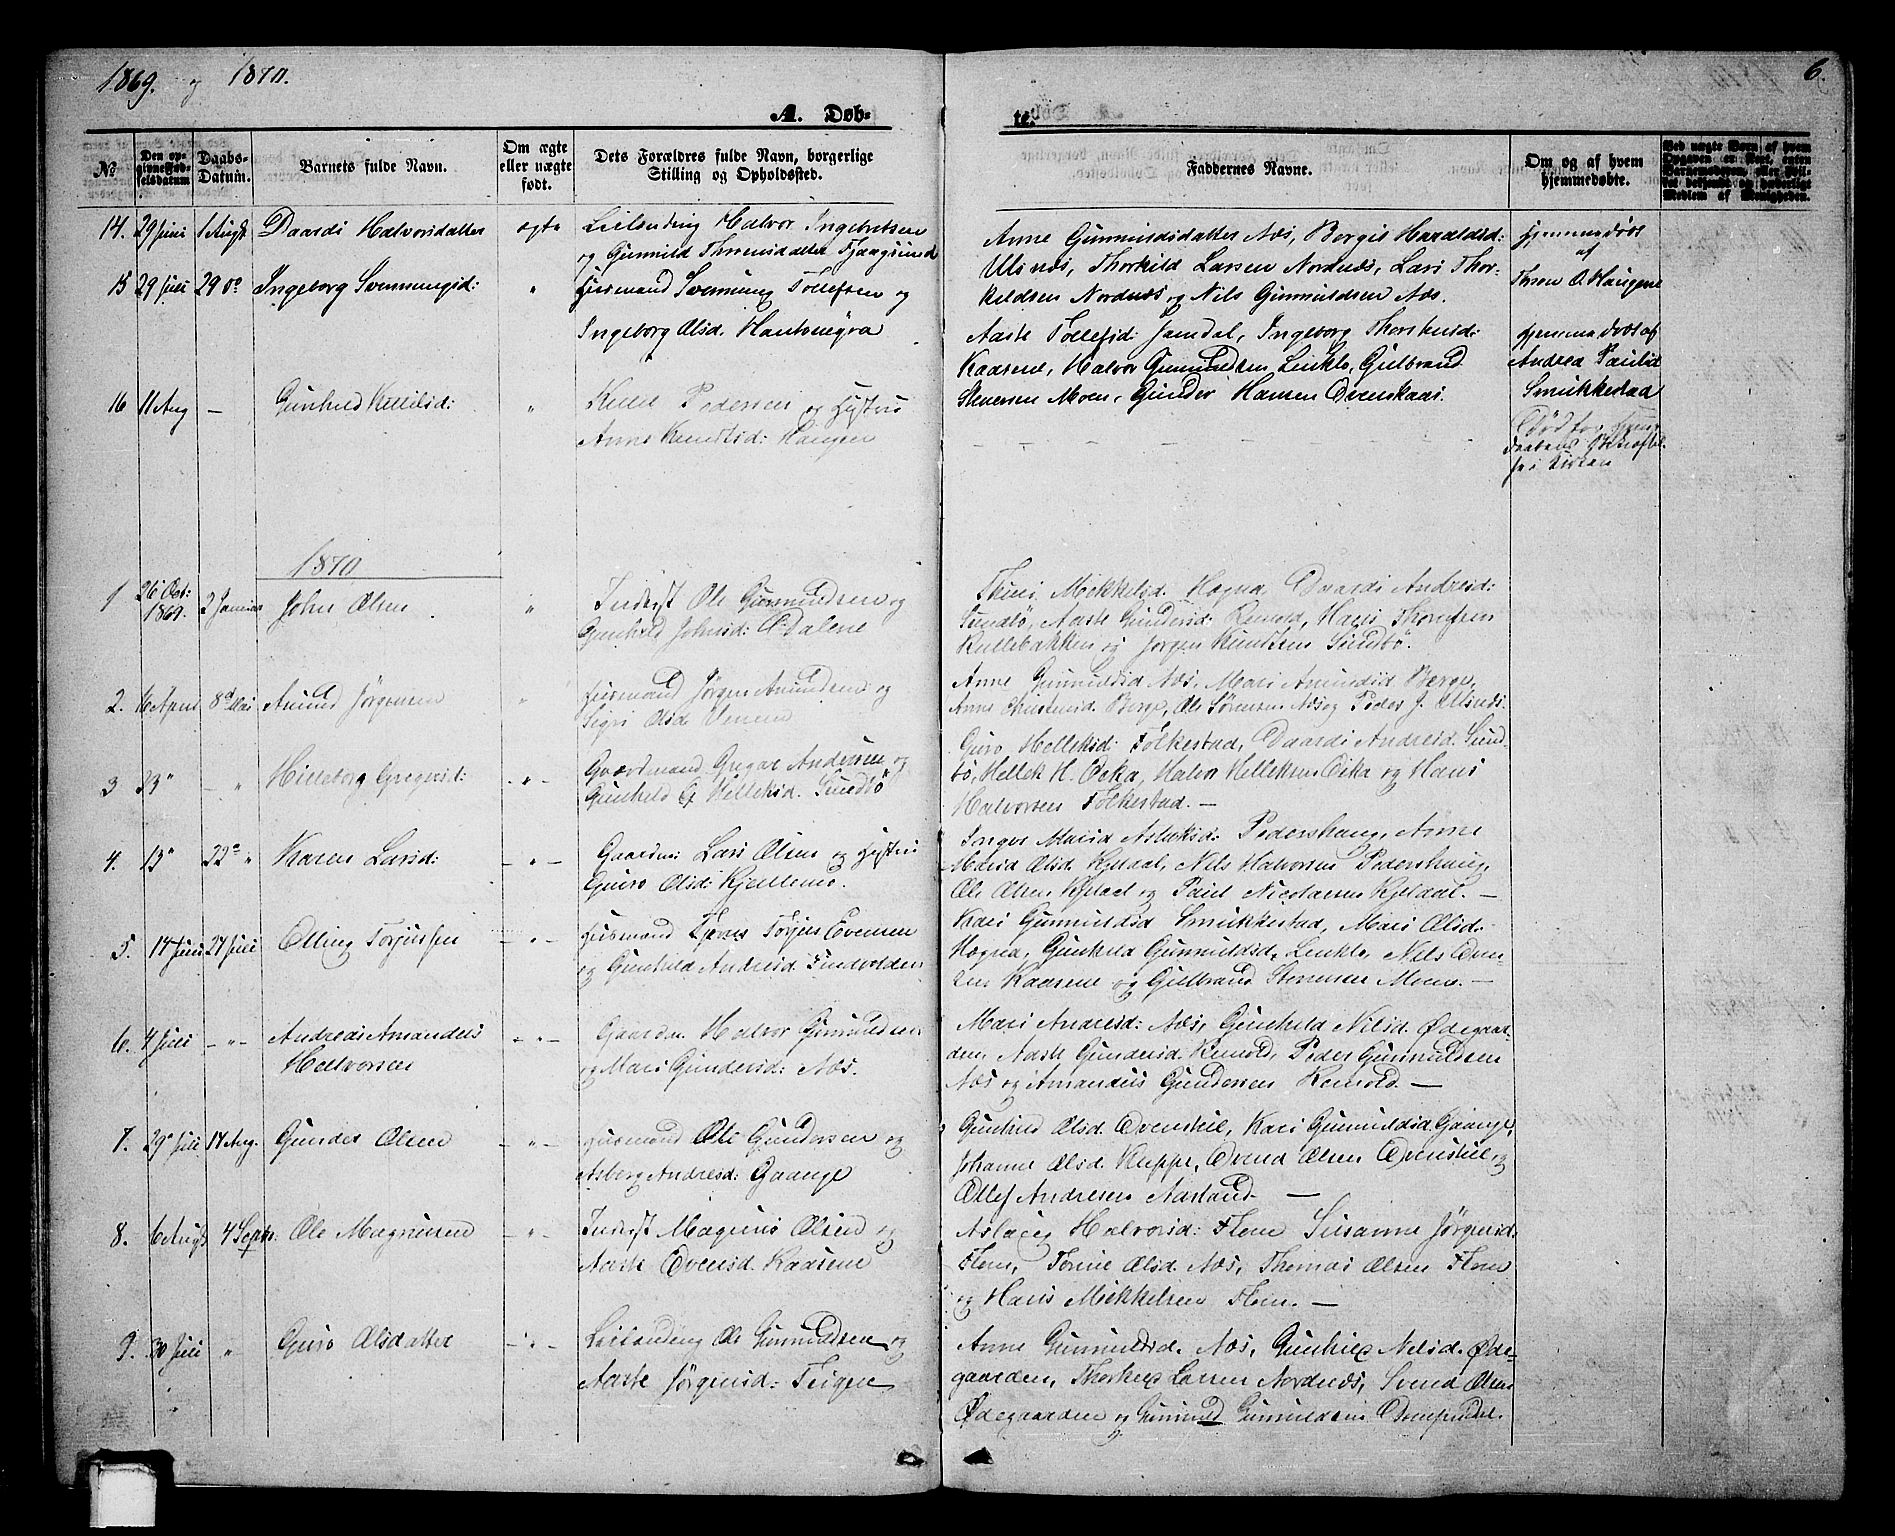 1869. og 1870.
6.
A. Døb-
te.
No
Den op-
givne Fød-
selsdatum
Daabs-
Datum.
Barnets fulde Navn.
Om ægte
eller uægte
født.
Dets Forældres fulde Navn, borgerlige
Stilling og Opholdssted.
Faddernes Navne.
Om og af hvem
hjemmedøbte.
Ved uægte Børn af hvem
Opgaven er skeet, enten
Barnemoderen, eller
Medlem af Menigheden.
14. 29 Juni 1 Augst Daardi Halvorsdatter ægte Leilending Halvor Ingebretsen
og Gunnild Thorensdatter Tjaagesund
Anne Gunnuldsdatter Næs, Bergit Haraldsd:
Ulsnæs, Thorkild Larsen Nordnæs, Lars Thor-
kildsen Nordnæs og Nils Gunnuldsen Næs.
Hjemmedøbt
af
O. Haugene
15 29 Juli 29 Oc Ingeborg Svennungsd: " Huusmand Svennung Tollefsen og
Ingeborg Olsd.
Aaste Tollefsd: Jamdal, Ingeborg
Kaasene, Halvor Gunnuldsen Linkle, Gulbrand
Stenersen Moen, Gunder Hansen
Hjemmedøbt af
Andrea Paulsd
Smukkestad
16 11 Aug — Gunhild Kittilsd: " Kittil Pedersen og Hustru
Anne Knudtsd: Haugen
Død før
Daabens Bekræftel-
se i Kirken
1870
1 26 Oct:
1869. 2 Januar John Olsen " Inderst Ole Gunnuldsen og
Gunhild Johnsd: Dalene
Mikkelsd. Hogna, Daardi Andresd:
Sundbø, Aaste Gundersd: Remold, Hans
Kullebakken og Jørgen Knudtsen Sundbø.
2. 16 April 8de Mai Amund Jørgensen " Huusmand Jørgen Amundsen og
Sigri Olsd
Anne Gunnuldsd Næs, Mari Amundsd Berge,
Anne Christensd Berge, Ole Sørensen Næs og Peder J. Ulsnæs.
3 23 " — " Hilleborg Gregersd: — " — Gaardmand Gregar Andersen og
Gunhild Helleksd. Sundbø
Guro Helleksd: Folkestad, Daardi Andresd. Sund-
bø, Hellek H. Oeka, Halvor Helleksen Oeka og Hans
Halvorsen Folkestad. —
4. 13 " 22de " Karen Larsd: — " — Gaardm: Lars Olsen og Hustru
Guro Olsd: Kjellemo.
Inger Marie Aslaksd: Pedershaug, Anne
Marie Olsd. Kjeldal, Nils Halvorsen Pedershaug,
Ole Olsen Kjeldal og Paul Nicolaisen Kjeldal. —
5. 14 Juni 24 Juli Elling Torjussen — " — Huusmand Torjus Evensen
og Gunhild Andresd. Sundvolden
Kari Gunnuldsd Smukkestad, Mari Olsd.
Hogna, Gunhild Gunnuldsd. Linkle, Nils Even-
sen Kaasene og Gulbrand Stenersen Moen. —
6. 4 Juli — " — Andreas Amandus
Halvorsen — " — Gaardm Halvor Gunnuldsen
og Mari Gundersd: Næs.
Mari Andresd: Næs, Gunhild Nilsd. Ødegaar-
den, Aaste Gundersd. Remold, Peder Gunnuldsen
Næs og Amandus Gundersen Remold. —
7. 29 Juli 14 Aug. Gunder Olsen — " — Huusmand Ole Gundersen og
Asberg Andresd: Gaange
Gunhild Olsd. Kari Gunnuldsd. Gaange,
Johanne Olsd. Kleppe, Olsen og
Ollef Andresen Aastand. —
8. 6 Augst 4 Septr. Ole Magnussen — " — Inderst Magnus Olsen og
Aaste Evensd. Kaasene
Aslaug Halvorsd: Flom Susanne Jørgensd:
Flom, Torine Olsd. Næs, Thomas Olsen Flom
og Hans Mikkelsen Flom. —
9. 30 Juli " Guro Olsdatter — " — Leilending Ole Gunnuldsen og
Aaste Jørgensd: Teigen
Anne Gunnuldsd. Næs, Gunhild Nilsd. Øde-
gaarden, Thorkild Larsen Nordnæs, Svend Olsen
Ødegaarden og Gunnuld Gunnuldsen